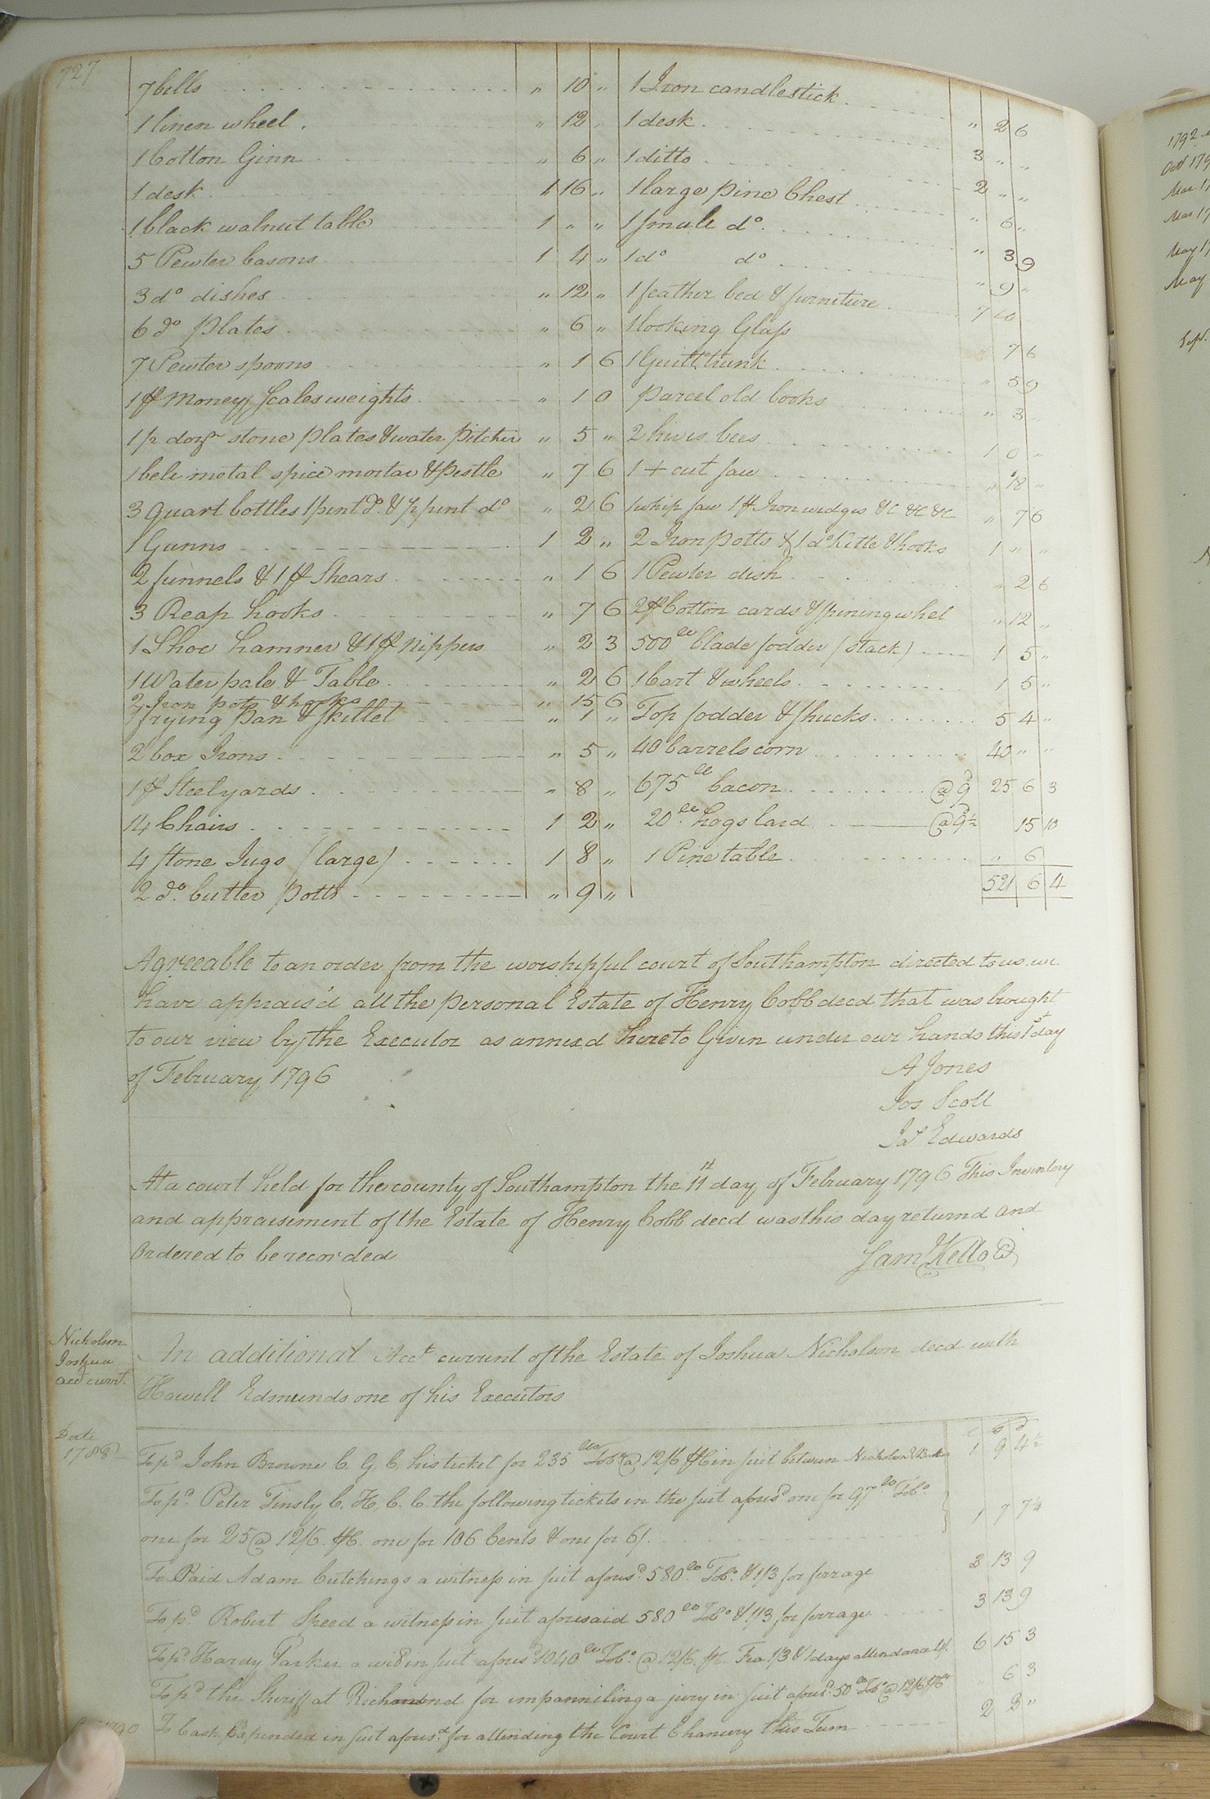 727
7 bills " 10 "
1 linen wheel " 12 "
1 Cotton Ginn " 6 "
1 desk 1 16 "
1 black walnut table 1 " "
5 Pewter basons 1 4 "
3 do dishes " 12 "
6 do plates " 6 "
7 Pewter spoons " 1 6
1 pr money scales weights " 1 0
1/2 dozn stone plates & water pitcher " 5 "
1 bell metal spice mortar & pestle " 7 6
3 Quart bottles 1 pint do & 1/2 pint do " 2 6
1 Gunns 1 2 "
2 funnels & 1 pr Shears " 1 6
3 Reap hooks " 7 6
1 Shoe hammer & 1 pr Nippers " 2 3
1 Water pale & Table " 2 6
2 Iron pots & hooks " 15 6
frying Pan & Skillet " 1 "
2 box Irons " 5 "
1 pr Steelyards " 8 "
14 Chairs 1 2 "
4 stone Jugs (large) 1 8 "
2 do butter potts " 9 "
1 Iron candlestick " 2 6
1 desk 3 " "
1 ditto 2 " "
1 large pine Chest " 6 "
1 smale do " 3 9
1 do do " 9 "
1 feather bed & furniture 7 10
1 looking Glass " 7 6
1 Guilt trunk " 5 9
parcel old books " 3
2 hives bees 1 0 "
1 + cut saw " 18 "
1 whip saw 1 pr Iron wedges &c &c &c " 7 6
2 Iron potts & 1 do Kitle & hooks 1 " "
1 Pewter dish " 2 6
2 pr Cotton cards & spining whel " 12 "
500 lb blade fodder (stack) 1 5 "
1 Cart & wheels 1 5 "
Top fodder & shucks 5 4 "
40 barrels corn 40 " "
675 lb bacon @ 9d 25 6 3
20 lb hogs lard @ 9½ 15 10
1 Pine table " 6
521 6 4
Agreeable to an order from the worshipful court of Southampton directed to us we
have apprais'd all the personal Estate of Henry Cobb decd that was brought
to our view by the Executor as annexd hereto Given under our hands this 1st day
of February 1796
A Jones
Jos Scott
Jas Edwards
At a court held for the county of Southampton the 11th day of February 1796 This Inventory
and appraisement of the Estate of Henry Cobb decd was this day returnd and
Ordered to be recorded
Saml Kello
Nicholson
Joshua
acct currt.
An additional Acct current of the Estate of Joshua Nicholson decd with
Howell Edmunds one of his Executors
Date
1788
To pd John Browne C. G. C. his ticket for 235 lbs Tobo @ 12/6 pC in suit between Nicholson & 1 9 4½
To pd Peter Tinsly C. H. C. C. the following tickets in the suit aforesd one for 97 lb Tobo
one for 25 @ 12/6 pC. one for 106 Cents & one for 6/. 1 7 7½
To Paid Adam Cutchings a witness in suit aforesd 580 lb Tobo & 1/3 for ferrage 3 13 9
To pd Robert Speed a witness in suit aforesaid 580 lb Tobo & 1/3 for ferrage 3 13 9
To pd Hardy Parker a wits in suit aforesd 1040 lb Tobo @ 12/6 pC. 1/3 & days attendance 6 15 3
To pd the Sheriff at Richmond for impanniling a jury in suit aforesd 50 lb Tobo @ 12/6 pC 6 3
1790 To Cash Expended in suit aforesd for attending the Court Chancery this Turn 2 3 "